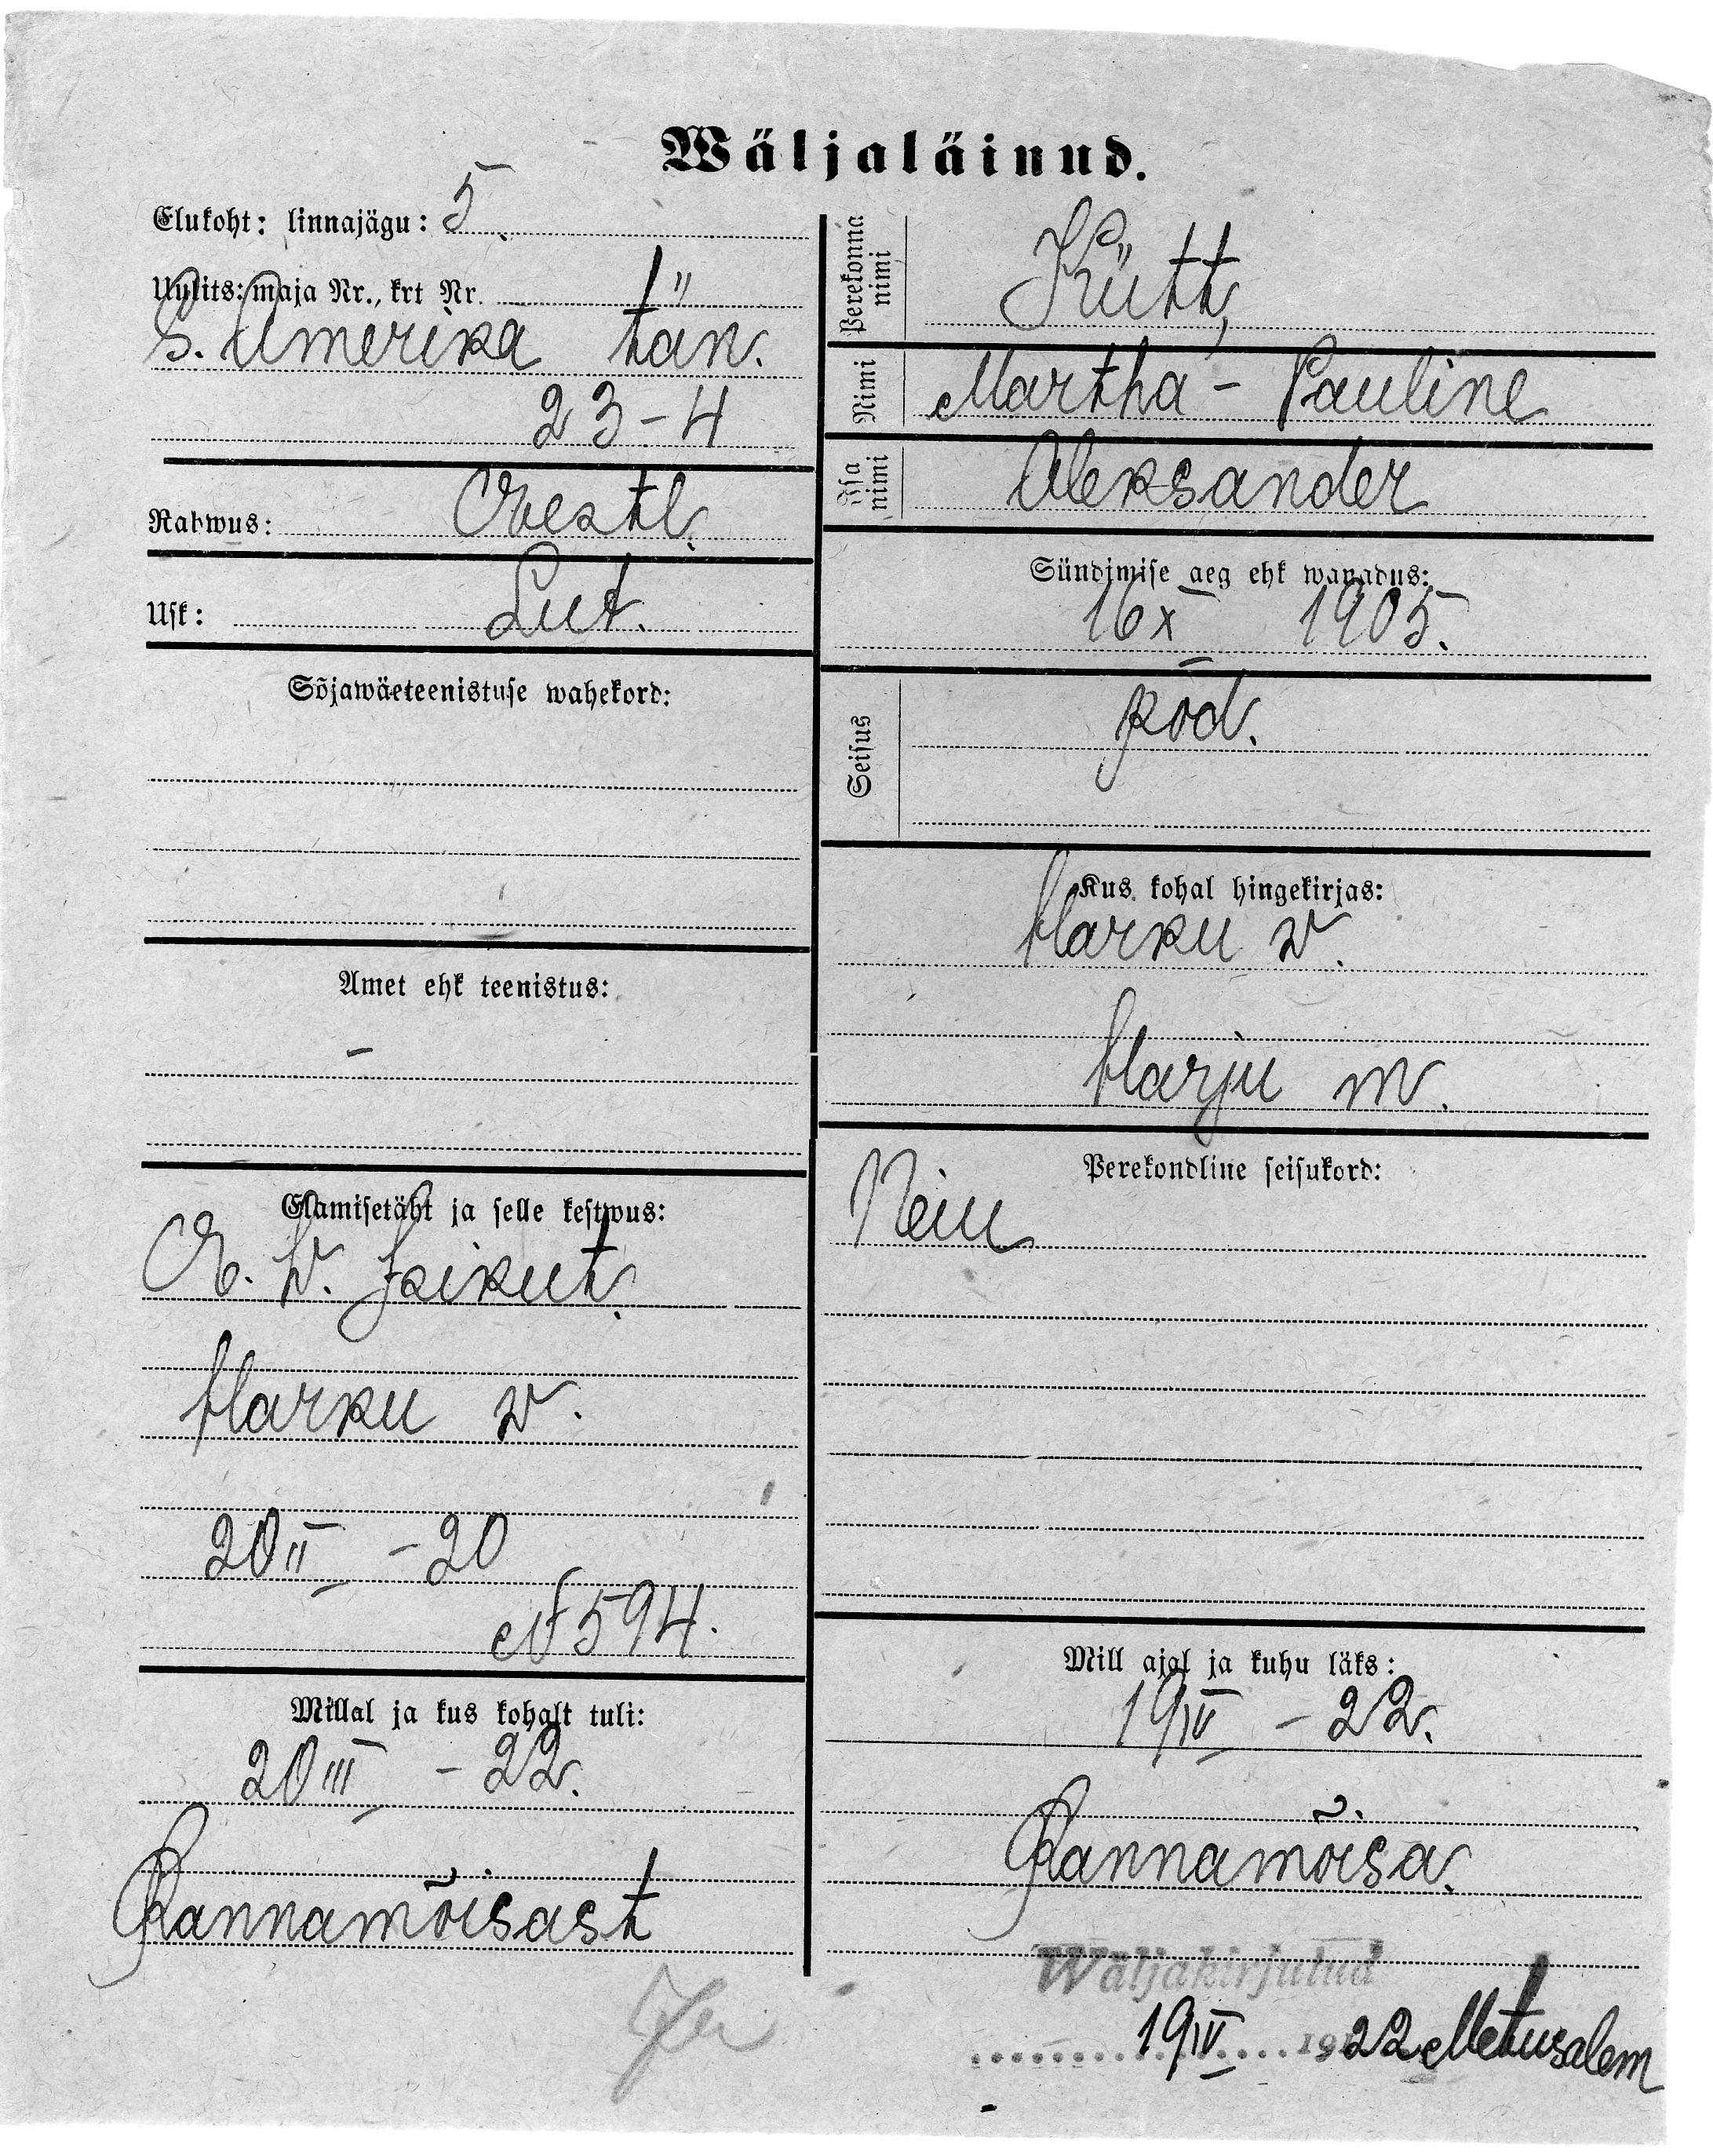 Wäljaläinud.
Elukoht: linnajägu: 5.
Uulits: maja Nr., krt Nr.
S. Amerika tän.
23-4
Rahwus: Eestl.
Usk: Lut.
Sõjawäeteenistuse wahekord:
Amet ehk teenistus:
-
Elamisetäht ja selle kestwus:
E. W. Isikut.
Harku w.
20 II - 20
№ 594.
Millal ja kus kohalt tuli:
20 III - 22.
Rannamõisast
Perekonna nimi
Kütt,
Nimi
Martha - Pauline
Isa nimi
Aleksander
Sündimise aeg ehk wanadus:
16 X 1905.
Seisus
Kus kohal hingekirjas:
Harku w.
Harju m.
Perekondline seisukord:
Neiu
Mill ajal ja kuhu läks:
19 IV - 22.
Rannamõisa.
Wäljakirjutud
19 IV 1922 Metusalem